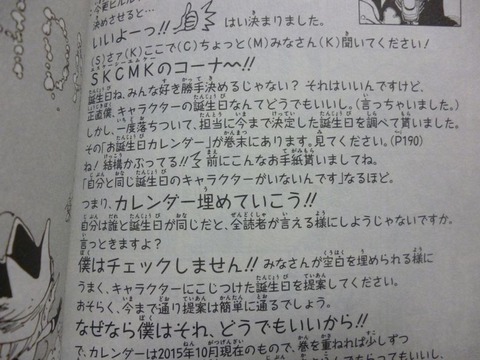 決めさせると…
いいよーっ!! はい決まりました。
(S)さァ(K)ここで(C)ちょっと(M)みなさん(K)聞いてください!
SKCMKのコーナ〜!!
誕生日ね、みんな好き勝手決めるじゃない? それはいいんですけど、
正直僕、キャラクターの誕生日なんてどうでもいい。(言っちゃいました。)
しかし、一度落ちついて、担当に今まで決定した誕生日を調べて貰いました。
その「お誕生日カレンダー」が巻末にあります。見てください。(P190)
ね!結構かぶってる!!で 前にこんなお手紙貰いましてね。
「自分と同じ誕生日のキャラクターがいないんです」なるほど。
つまり、カレンダー埋めていこう!!
自分は誰と誕生日が同じだと、全読者が言える様にしようじゃないですか。
言っときますよ?
僕はチェックしません!! みなさんが空白を埋められる様に
うまく、キャラクターにこじつけた誕生日を提案してください。
おそらく、今まで通り提案は簡単に通るでしょう。
なぜなら僕はそれ、どうでもいいから!!
で、カレンダーは2015年10月現在のもので、巻を重ねれば少しずつ